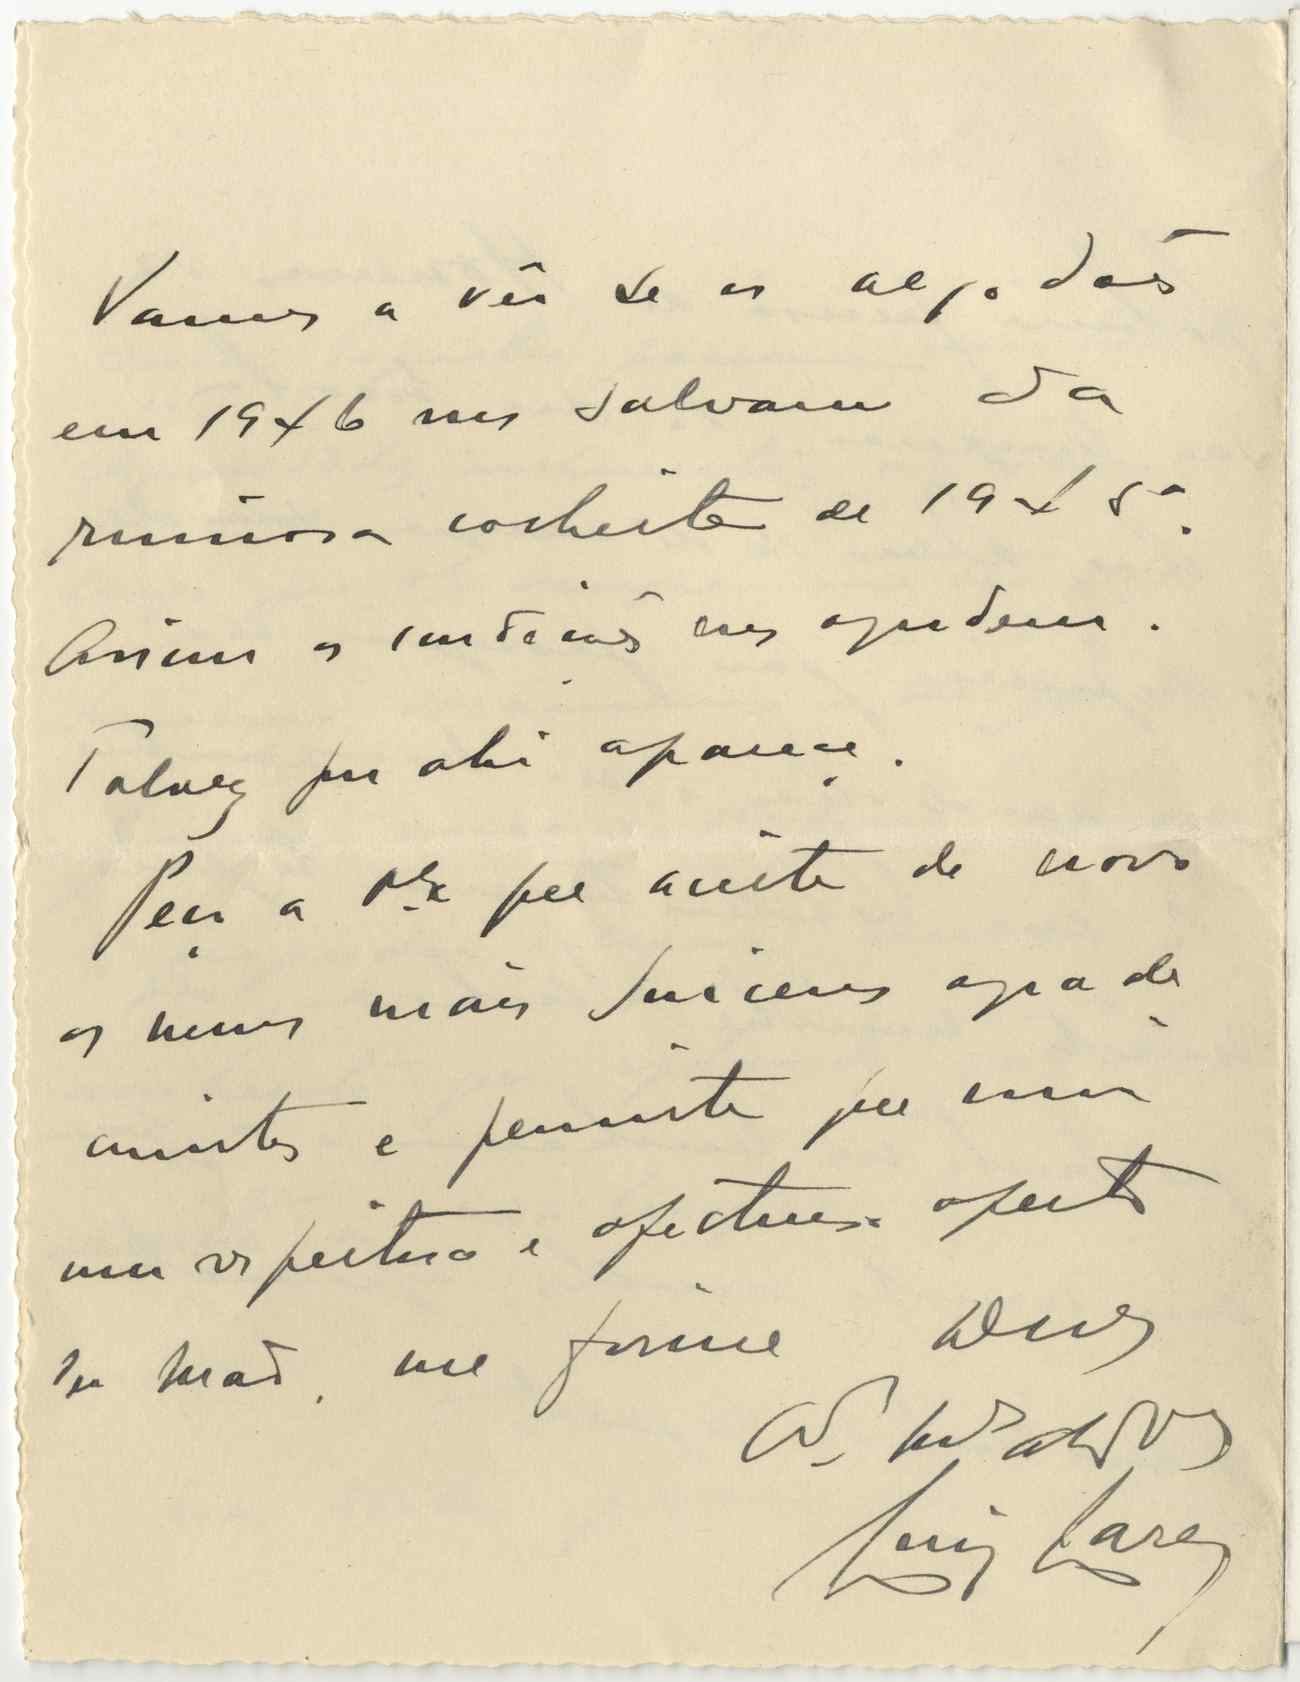 Vamos a vêr se os algodões
em 1946 nos salvam da
ruinosa colheita de 1945.
Assim as condições nos ajudem.
Talvez por ahi apareça.
Peço a V. Ex.ª que aceite de novo
os meus mais sinceros agrade
cimentos e permita que num
um respeitoso e afectuoso aperto
de mão, me firme
Luiz